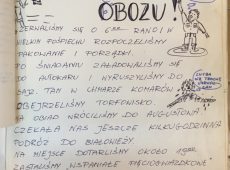 OBOZU!
ZERWALIŚMY SIĘ O 6:00 RANO I W
WIELKIM POŚPIECHU ROZPOCZĘLIŚMY
PAKOWANIE I PORZĄDKI.
PO ŚNIADANIU ZAŁADOWALIŚMY SIĘ
DO AUTOKARU I WYRUSZYLIŚMY DO
TAM W CHMARZE KOMARÓW
OBEJRZELIŚMY TORFOWISKO.
NA OBIAD WRÓCILIŚMY DO AUGUSTOWA.
CZEKAŁA NAS JESZCZE KILKUGODZINNA
PODRÓŻ DO BIAŁOWIEŻY
NA MIEJSCE DOTARLIŚMY OKOŁO 19:00
ZASTALIŚMY WSPANIAŁE PIĘCIOGWIAZDKOWE